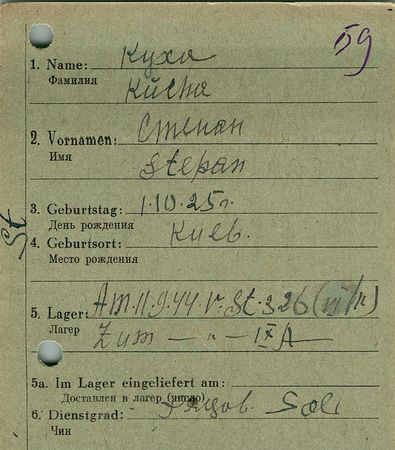 59
1. Name: Куха
Фамилия
Kücha
2. Vornamen: Степан
Имя
Stepan
3. Geburtstag: 1.10.25г.
День рождения
4. Geburtsort: Киев.
Место рождения
St
5. Lager: Am 11.9.44 v. St. 326 (VI/K)
Лагерь
Zum — " — IX A
5a. Im Lager eingeliefert am:
Доставлен в лагер (число)
6. Dienstgrad: Рядов. Sol
Чин